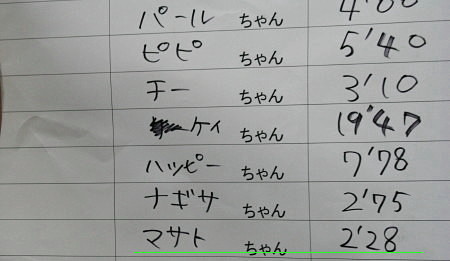 パール ちゃん 4'00
ピピ ちゃん 5'40
チー ちゃん 3'10
ケイ ちゃん 19'47
ハッピー ちゃん 7'78
ナギサ ちゃん 2'75
マサト ちゃん 2'28